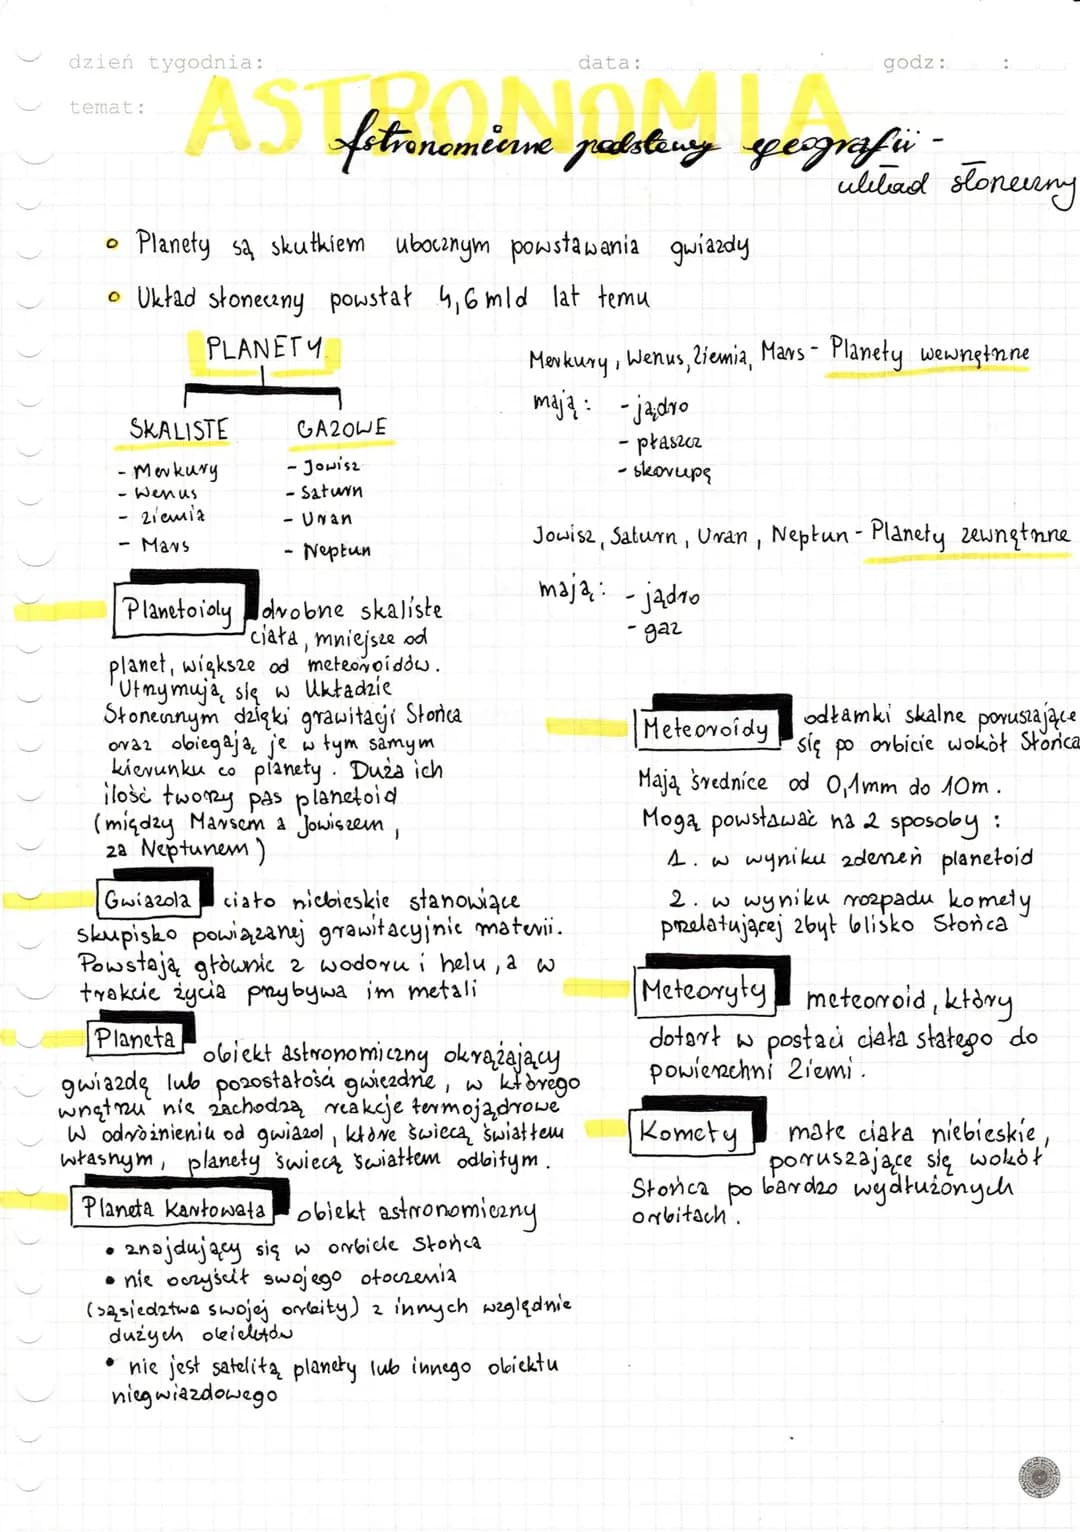 dzień tygodnia: data: godz: :
temat:
ASTRONOMIA
Astronomiczne podstawy geografii -
układ słoneczny
Planety są skutkiem ubocznym powstawania gwiazdy
Układ słoneczny powstał 4,6 mld lat temu
PLANETY
SKALISTE
- Merkury
- Wenus
- Ziemia
- Mars
GAZOWE
- Jowisz
- Saturn
- Uran
- Neptun
Merkury, Wenus, Ziemia, Mars - Planety wewnętrzne
mają: - jądro
- płaszcz
- skorupę
Jowisz, Saturn, Uran, Neptun - Planety zewnętrzne
mają: - jądro
- gaz
Planetoidy drobne skaliste
ciała, mniejsze od
planet, większe od meteoroidów.
Utrzymują się w Układzie
Słonecznym dzięki grawitacji Słońca
oraz obiegają je w tym samym
kierunku co planety. Duża ich
ilość tworzy pas planetoid
(między Marsem a Jowiszem,
za Neptunem)
Gwiazda ciało niebieskie stanowiące
skupisko powiązanej grawitacyjnie materii.
Powstają głównie z wodoru i helu, a w
trakcie życia przybywa im metali
Planeta obiekt astronomiczny okrążający
gwiazdę lub pozostałości gwiezdne, w którego
wnętrzu nie zachodzą reakcje termojądrowe
W odróżnieniu od gwiazd, które świecą światłem
własnym, planety świecą światłem odbitym.
Planeta Karłowata obiekt astronomiczny
• znajdujący się w orbicie Słońca
• nie oczyścił swojego otoczenia
(sąsiedztwa swojej orbity) z innych względnie
dużych obiektów
• nie jest satelitą planety lub innego obiektu
niegwiazdowego
Meteoroidy odłamki skalne poruszające
się po orbicie wokół Słońca
Mają średnice od 0,1mm do 10m.
Mogą powstawać na 2 sposoby:
1. w wyniku zderzeń planetoid
2. w wyniku rozpadu komety
przelatującej zbyt blisko Słońca
Meteoryty meteoroid, który
dotarł w postaci ciała stałego do
powierzchni Ziemi.
Komety małe ciała niebieskie,
poruszające się wokół
Słońca po bardzo wydłużonych
orbitach.